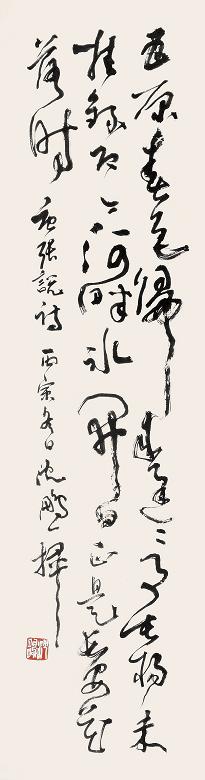 五原春色來遲二月垂楊未
挂絲即今河畔冰開日正是長安花
落時 唐張說詩 丙寅冬日沈鵬